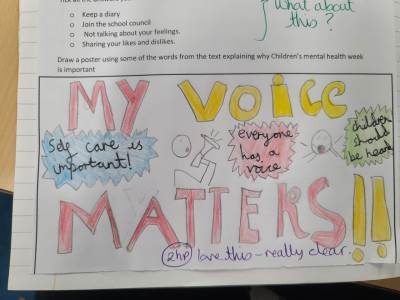 What about
this?
o Keep a diary
o Join the school council
o Not talking about your feelings.
o Sharing your likes and dislikes.
Draw a poster using some of the words from the text explaining why Children's mental health week
is important
MY VOICE
Self care is
important!
everyone
has a
voice
children
should
be heard
MATTERS!!
2hp love this - really clear.